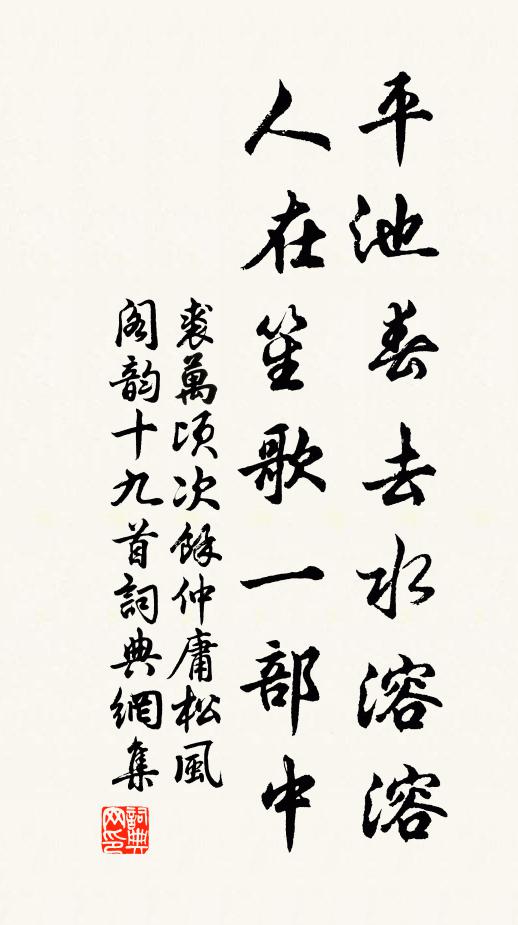 平池春去水溶溶
人在笙歌一部中
裘萬頃次餘仲庸松風
閣韵十九首詞典網集
詞典網印